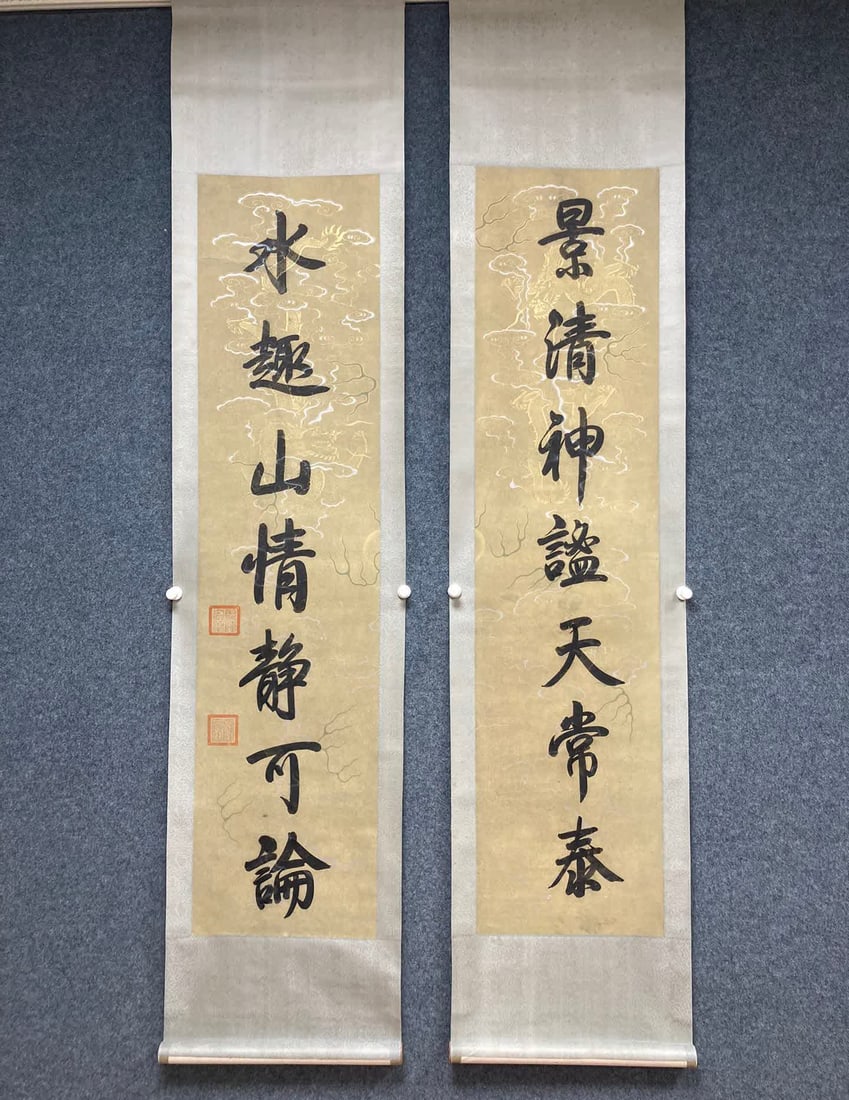 景清神謐天常泰
水趣山情静可論